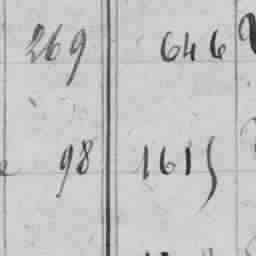 269 646
98 1615